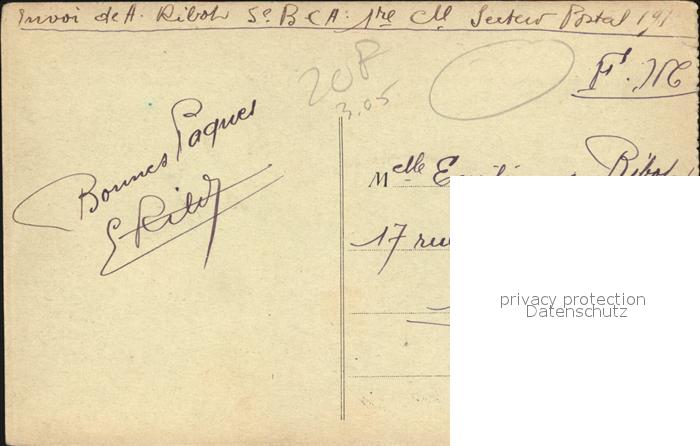 Envoi de A. Ribot 5e B C A: 1re Cie Secteur Postal 191
20F
3.05
F. M
Bonnes Paques
Ribot
Melle Ribot
17 rue
privacy protection
Datenschutz